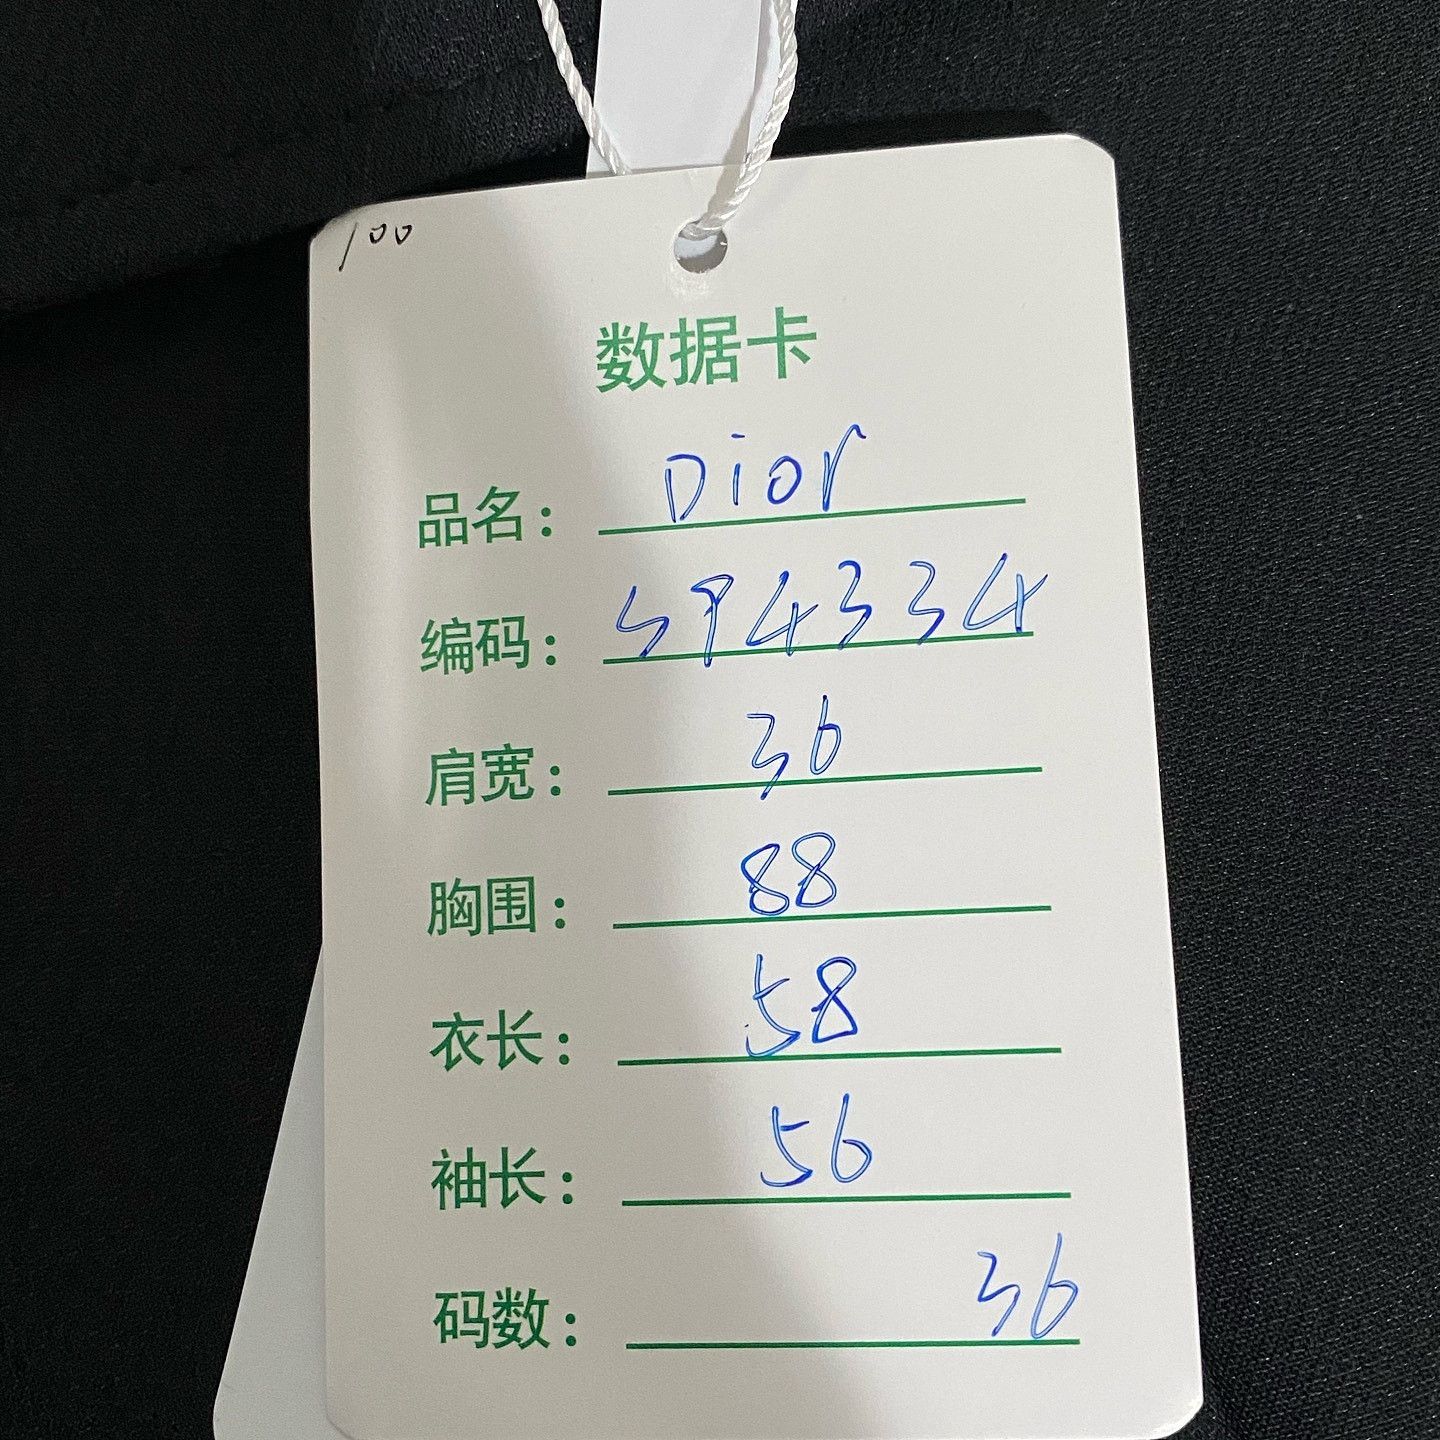 100
数据卡
品名: Dior
编码: 594334
肩宽: 36
胸围: 88
衣长: 58
袖长: 56
码数: 36